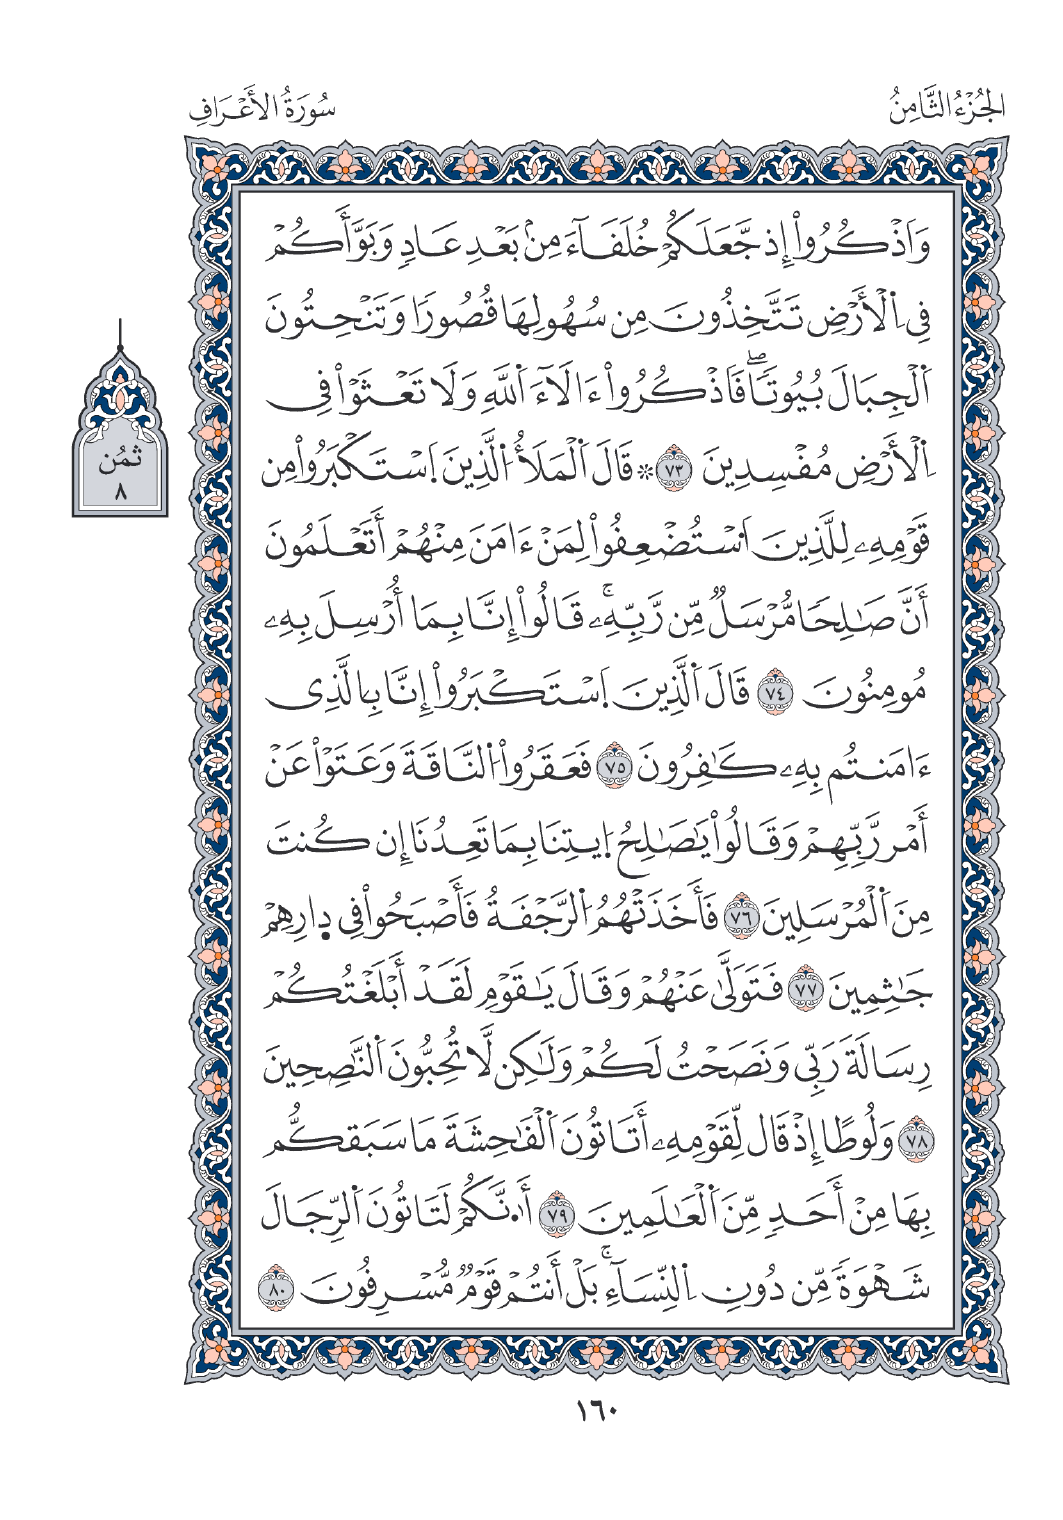 الجُزْءُ الثَّامِنُ
سُورَةُ الأَعْرَافِ
وَاَذْكُرُواْ إِذ جَّعَلَكُمْ خُلَفَآءَ مِنۢ بَعْدِ عَادٖ وَبَوَّأَكُمْ
فِي اِلْأَرْضِ تَتَّخِذُونَ مِن سُهُولِهَا قُصُورٗا وَتَنْحِتُونَ
اَلْجِبَالَ بُيُوتٗاۖ فَاَذْكُرُواْ ءَالَآءَ اَللَّهِ وَلَا تَعْثَوْاْ فِي
اِلْأَرْضِ مُفْسِدِينَ ٧٣ ۞ قَالَ اَلْمَلَأُ اُلَّذِينَ اَسْتَكْبَرُواْ مِن
قَوْمِهِۦ لِلَّذِينَ اَسْتُضْعِفُواْ لِمَنْ ءَامَنَ مِنْهُمْ أَتَعْلَمُونَ
أَنَّ صَٰلِحٗا مُّرْسَلٞ مِّن رَّبِّهِۦۚ قَالُواْ إِنَّا بِمَا أُرْسِلَ بِهِۦ
مُومِنُونَ ٧٤ قَالَ اَلَّذِينَ اَسْتَكْبَرُواْ إِنَّا بِالَّذِي
ءَامَنتُم بِهِۦ كَٰفِرُونَ ٧٥ فَعَقَرُواْ اُلنَّاقَةَ وَعَتَوْاْ عَنْ
أَمْر رَّبِّهِمْ وَقَالُواْ يَٰصَٰلِحُ اُيتِنَا بِمَا تَعِدُنَا إِن كُنتَ
مِنَ اَلْمُرْسَلِينَ ٧٦ فَأَخَذَتْهُمُ اُلرَّجْفَةُ فَأَصْبَحُواْ فِي دِارِهِمْ
جَٰثِمِينَ ٧٧ فَتَوَلَّىٰ عَنْهُمْ وَقَالَ يَٰقَوْمِ لَقَدْ أَبْلَغْتُكُمْ
رِسَالَةَ رَبِّي وَنَصَحْتُ لَكُمْ وَلَٰكِن لَّا تُحِبُّونَ اَلنَّٰصِحِينَ
٧٨ وَلُوطًا إِذْ قَال لِّقَوْمِهِۦ أَتَاتُونَ اَلْفَٰحِشَةَ مَا سَبَقكُّم
بِهَا مِنْ أَحَدٖ مِّنَ اَلْعَٰلَمِينَ ٧٩ أَٰنَّكُمْ لَتَاتُونَ اَلرِّجَالَ
شَهْوَةٗ مِّن دُونِ اِلنِّسَآءِۚ بَلْ أَنتُمْ قَوْمٞ مُّسْرِفُونَ ٨٠
ثمُن
٨
١٦٠